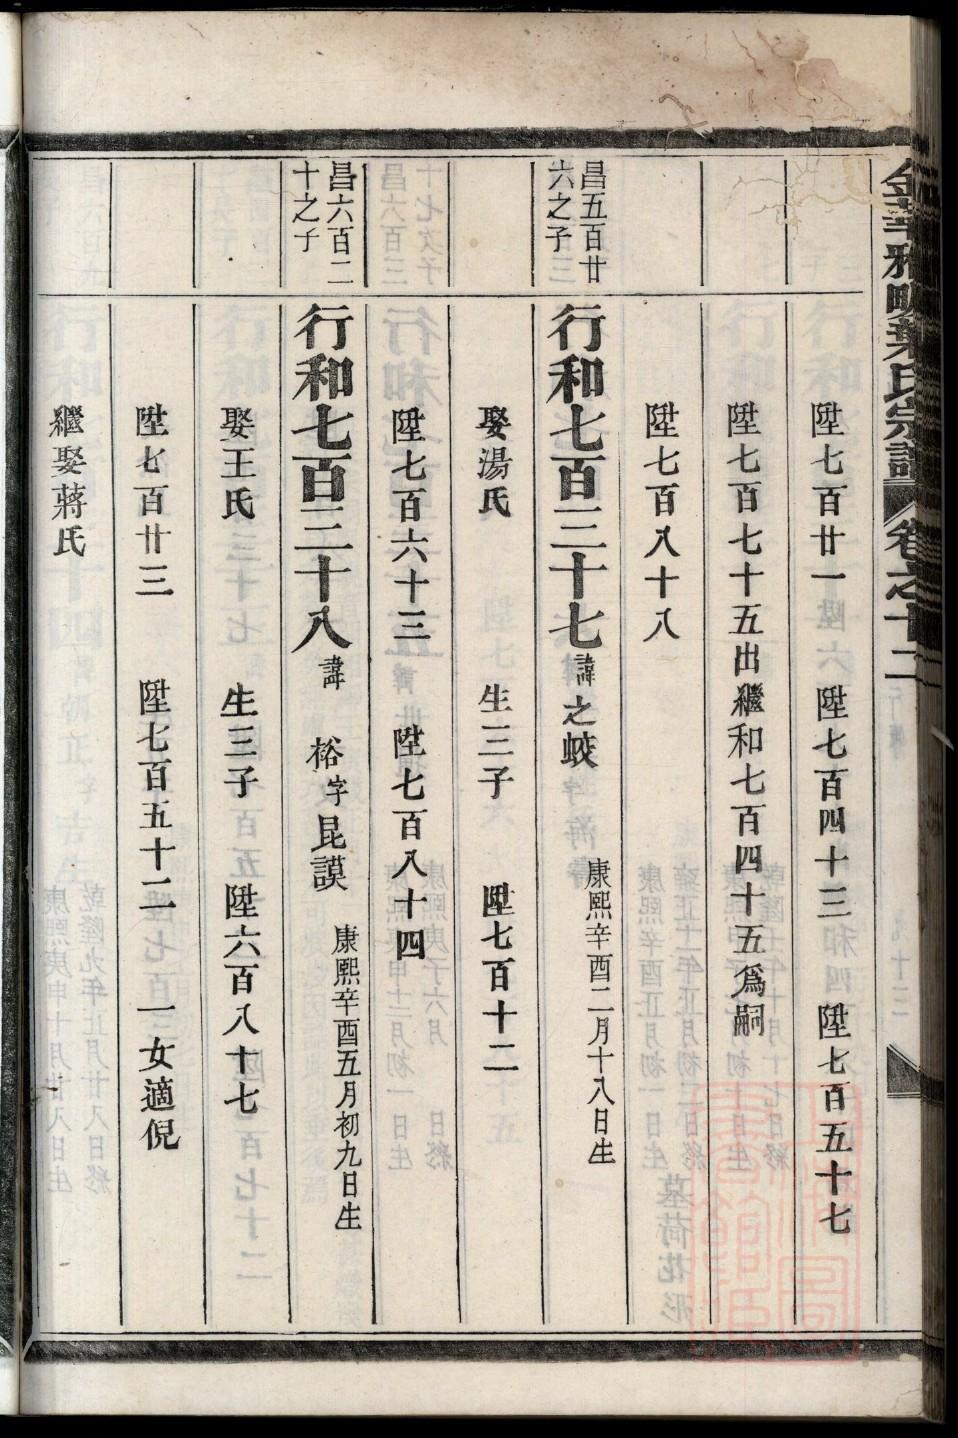 葉氏宗譜 卷之十二
陞七百廿一 陞七百四十三 陞七百五十七
陞七百七十五出繼和七百四十五爲嗣
陞七百八十八
昌五百廿六之子
行和七百三十七 諱之蛟 康熙辛酉二月十八日生
娶湯氏 生三子 陞七百十二
陞七百六十三 陞七百八十四
昌六百二十之子
行和七百三十八 諱裕 字昆謨 康熙辛酉五月初九日生
娶王氏 生三子 陞六百八十七
陞七百廿三 陞七百五十二 一女適倪
繼娶蔣氏